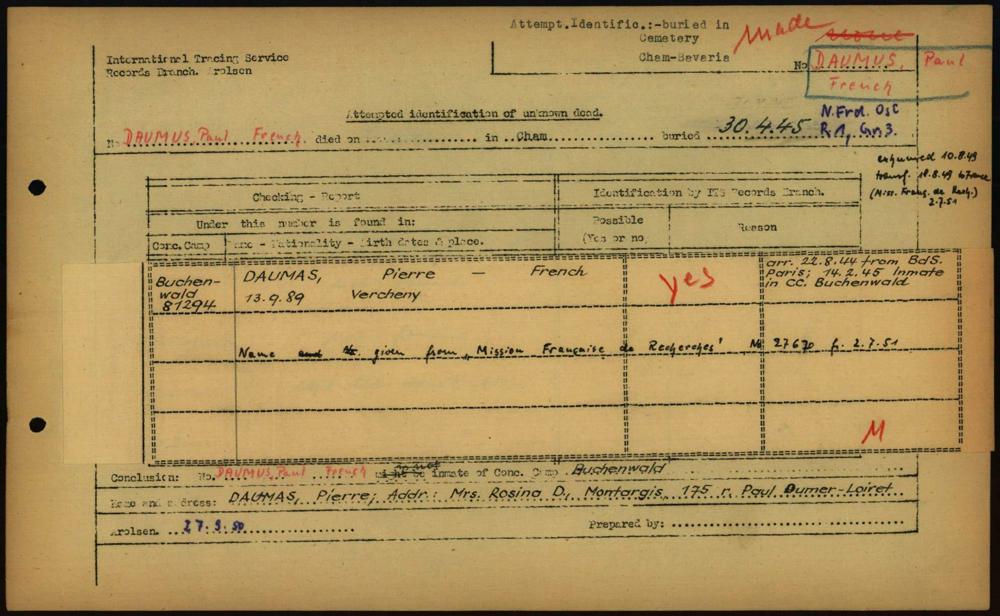 Attempt.Identific.:-buried in
Cemetery
Cham-Bavaria
made
International Tracing Service
Records Branch. Arolsen
No DAUMUS, Paul
French
Attempted identification of unknown dead.
N.Frd. OsC
R 1, Gr. 3.
N. DAUMUS, Paul French. died on .......... in ..Cham.......... buried 30.4.45
exhumed 10.8.49
transf. 18.8.49 to France
(Miss. Franç. de Rech.)
2.7.51
Checking - Report
Identification by ITS Records Branch.
Under this number is found in:
Possible
(Yes or no)
Reason
Conc.Camp
Name - Nationality - Birth dates & place.
Buchen-
wald
81294
DAUMAS, Pierre — French
13.9.89 Vercheny
yes
arr. 22.8.44 from BdS.
Paris; 14.2.45 Inmate
in CC. Buchenwald
Name and No. given from „Mission Française de Recherches" No 27670 f. 2.7.51
M
Conclusion: No. DAUMUS, Paul French inmate of Conc. Camp Buchenwald
Name and address: DAUMAS, Pierre; Addr.: Mrs. Rosina D., Montargis, 175 r. Paul Dumer-Loiret
Arolsen. 27.9.50
Prepared by: ....................